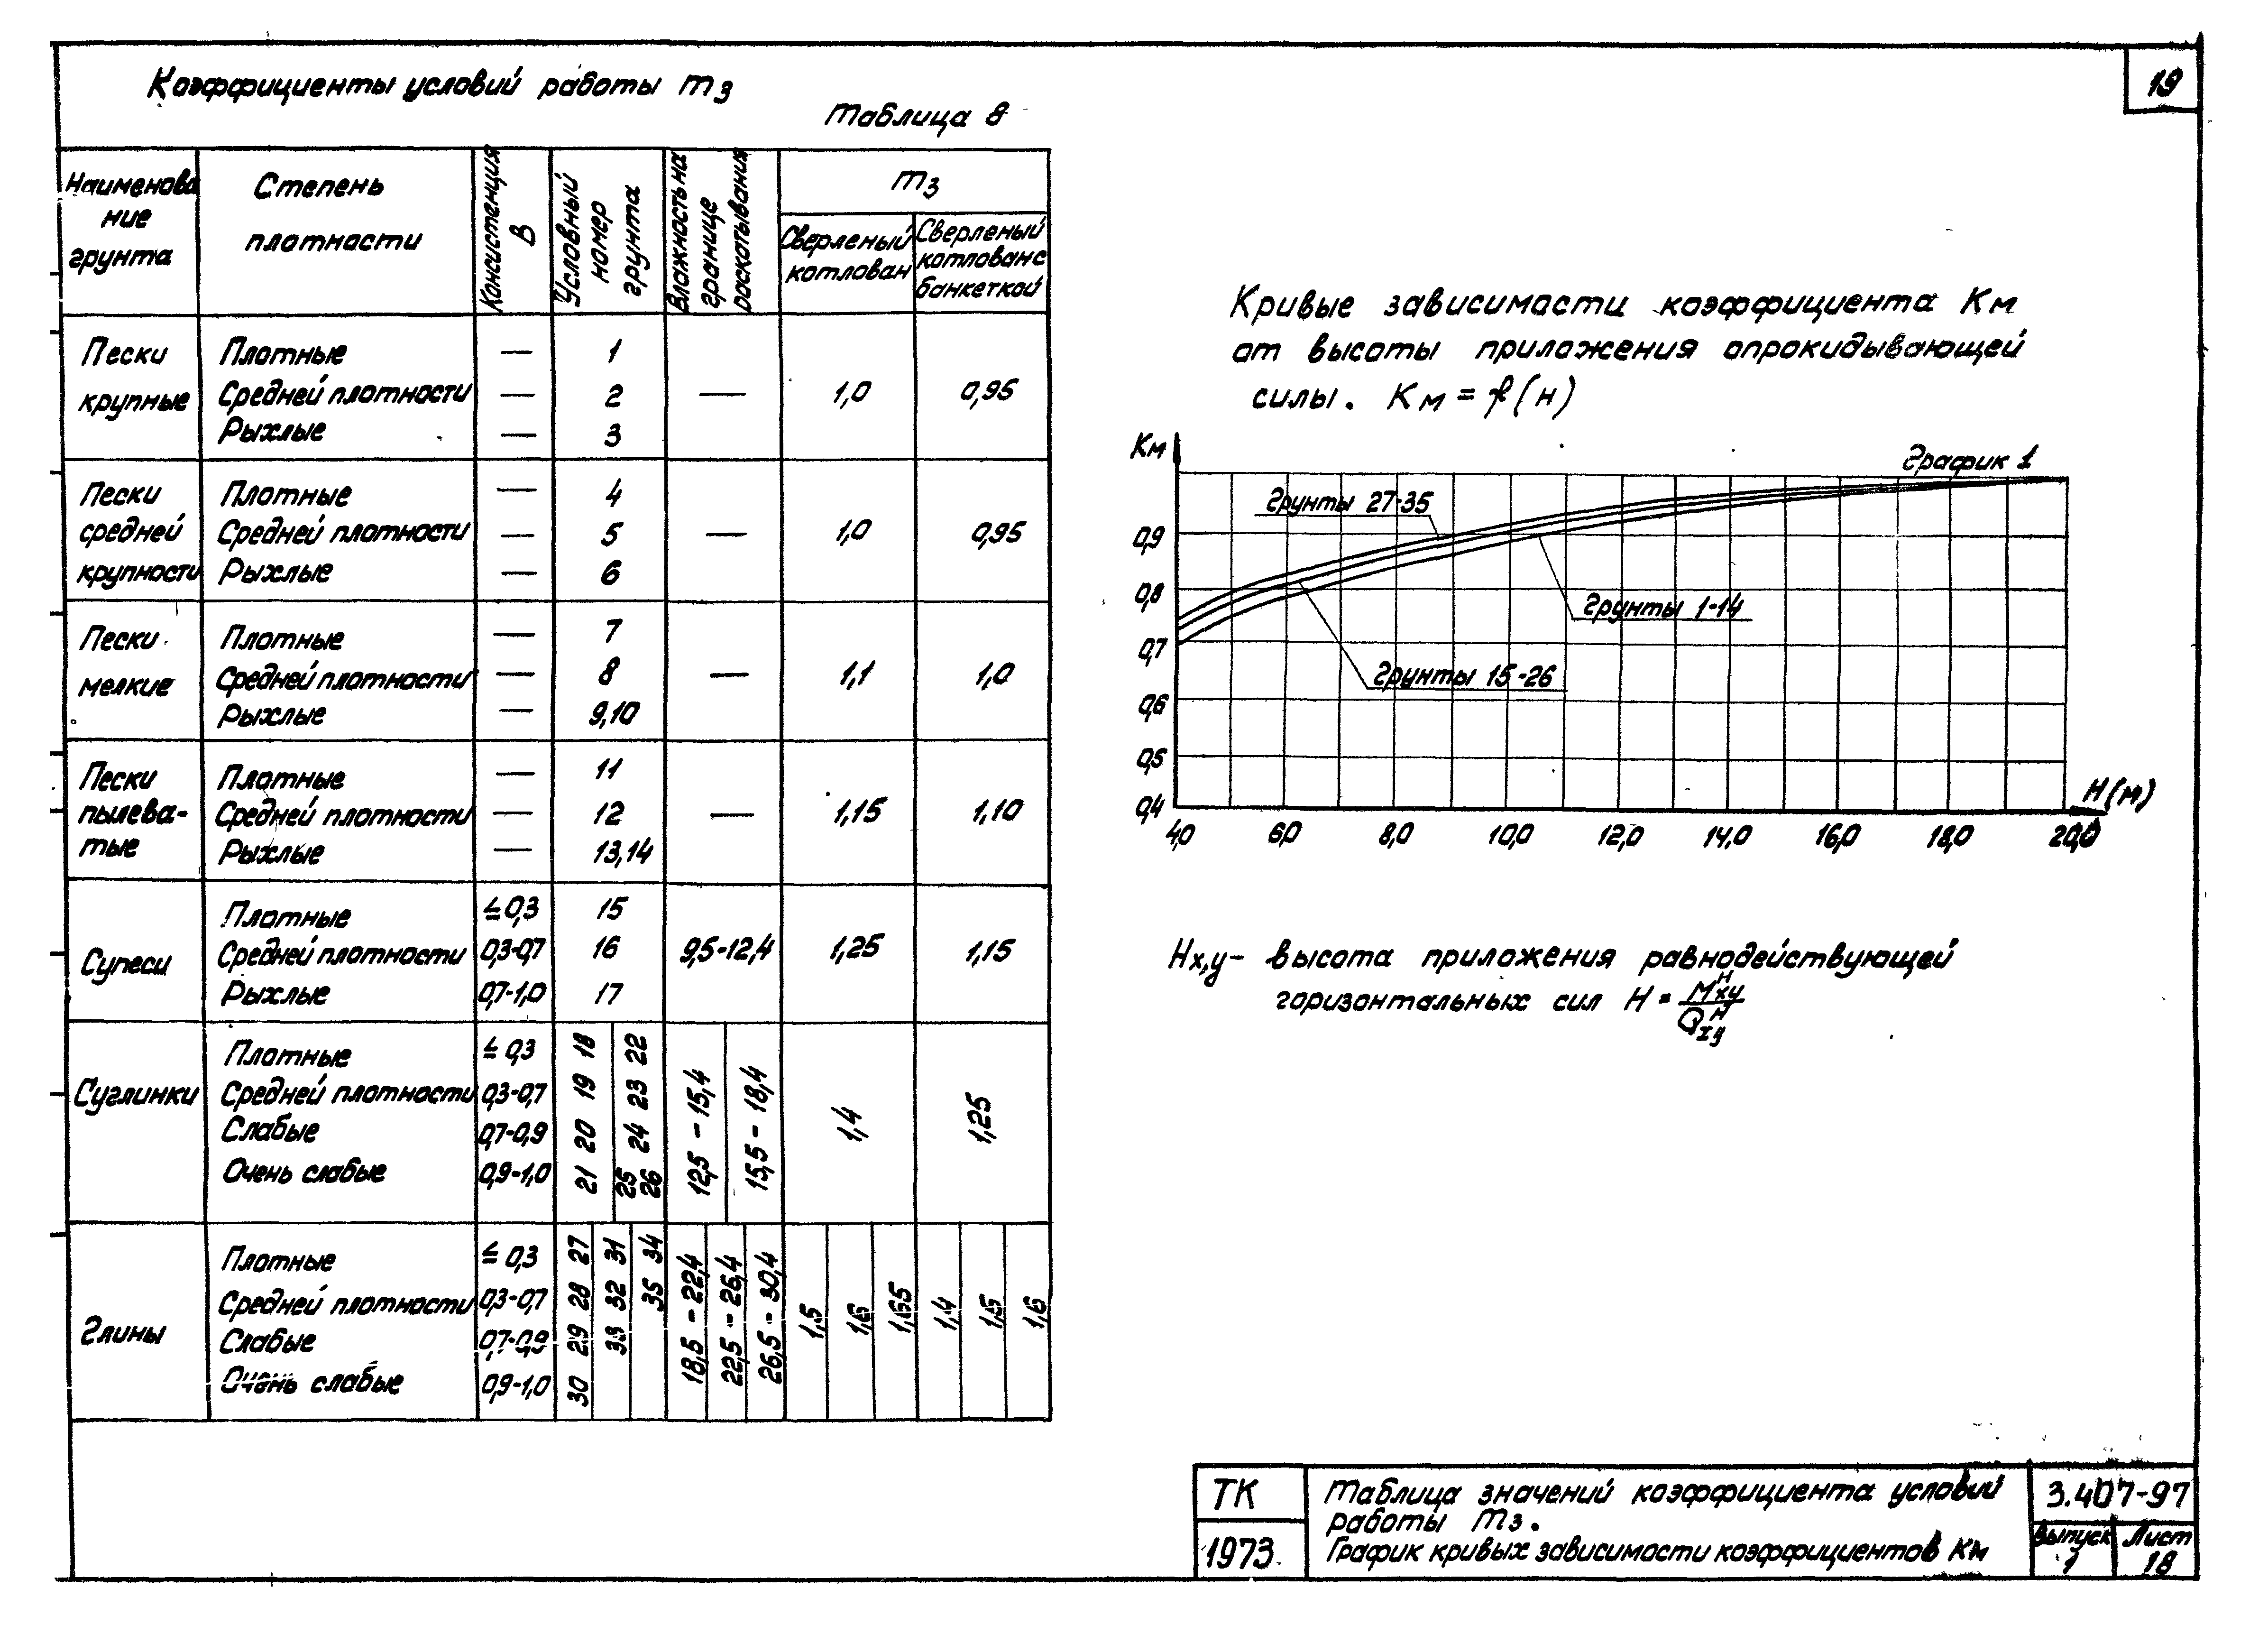 19
Коэффициенты условий работы m3
Таблица 8
Наименова
ние
грунта
Степень
плотности
Консистенция
В
Условный
номер
грунта
Влажность на
границе
раскатывания
m3
Сверленый
котлован
Сверленый
котлован с
банкеткой
Пески
крупные
Плотные — 1
Средней плотности — 2 — 1,0 0,95
Рыхлые — 3
Пески
средней
крупности
Плотные — 4
Средней плотности — 5 — 1,0 0,95
Рыхлые — 6
Пески
мелкие
Плотные — 7
Средней плотности — 8 — 1,1 1,0
Рыхлые — 9,10
Пески
пылева-
тые
Плотные — 11
Средней плотности — 12 — 1,15 1,10
Рыхлые — 13,14
Супеси
Плотные ≤ 0,3 15
Средней плотности 0,3-0,7 16 9,5-12,4 1,25 1,15
Рыхлые 0,7-1,0 17
Суглинки
Плотные ≤ 0,3 18 22
Средней плотности 0,3-0,7 19 23
Слабые 0,7-0,9 20 24
Очень слабые 0,9-1,0 21 25 26
12,5 - 15,4
15,5 - 18,4
1,4
1,25
Глины
Плотные ≤ 0,3 27 31 34
Средней плотности 0,3-0,7 28 32 35
Слабые 0,7-0,9 29 33
Очень слабые 0,9-1,0 30
18,5 - 22,4
22,5 - 26,4
26,5 - 30,4
1,5
1,6
1,65
1,4
1,5
1,6
Кривые зависимости коэффициента Км
от высоты приложения опрокидывающей
силы. Км = f(н)
Км
График 1
Грунты 27-35
Грунты 1-14
Грунты 15-26
0,9
0,8
0,7
0,6
0,5
0,4
Н(м)
4,0 6,0 8,0 10,0 12,0 14,0 16,0 18,0 20,0
Нх,у - высота приложения равнодействующей
горизонтальных сил Н = Мнху / Qнху
ТК
1973
Таблица значений коэффициента условий
работы m3.
График кривых зависимости коэффициентов Км
3.407-97
Выпуск
1
Лист
18